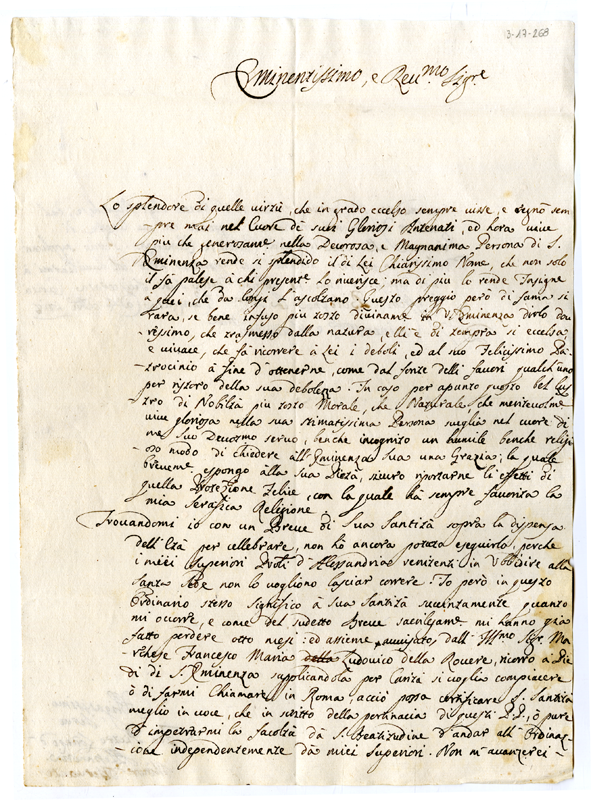 3-17-268
Eminentissimo, e Reu.mo Sig.re
Lo splendore di quelle virtù, che in grado eccelso sempre uisse, e regnò sem
-pre mai nel Cuore di suoi Gloriosi Antenati, ed hora uiue
più che generosam.te nella Decorosa, e Magnanima Persona di S.
Eminenza rende si splendido il di Lei Chiarissimo Nome, che non solo
il fà palese à chi present.e lo riuerisce; ma di più lo rende Insigne
à quei, che da longi l'ascoltano. Questo preggio però di fama si
rara, se bene infuso più tosto diuiname in V. Eminenza dirlo dou
-ressimo, che trasmesso dalla natura, elli è di tempra si eccelsa
e uiuace, che fà ricorere à Lei i deboli, ed al suo Felicissimo Pa
-trocinio à fine d'ottenerne, come dal fonte delli fauori qualch'uno
per ristoro della sua debolezza. In caso per apunto questo bel lus
-tro di Nobiltà più tosto Morale, che Naturale, che meriteuolme
uiue gloriosa nella sua stimatissima Persona sueglia nel cuore di
me suo Deuotmo seruo, benche incognito un humile benche religi
-oso modo di chiedere all'Eminenza Sua una Grazia; la quale
breueme espongo alla sua Pietà, sicuro riportarne li effetti di
quella Protezione Felice, con la quale hà sempre fauorita la
mia Serafica Religione.
Trouandomi io con un Breue di Sua Santità sopra la dispensa
dell'Età per cellebrare, non hò ancora potuto eseguirlo, perche
i miei Superiori Prõti d'Alessandria renitenti in Vbbidire alla
Santa Sede non lo uogliono lasciar correre. Io però in questo
Ordinario stesso significo à sua Santità succintamente quanto
mi occorre, e come del sudetto Breue sacrilegame mi hanno già
fatto perdere otto mesi: ed assieme auuisato dall'Ill.mo Sig.r Ma
-rchese Francesco Maria della Ludouico della Rouere, ricorro a Pie
di di S. Eminenza supplicandola per Carità si uoglia compiacere
ò di farmi Chiamare in Roma, acciò possa certificare S. Santità
meglio in uoce, che in scritto della pertinacia di questi P.P., ò pure
d'impetrarmi la facoltà da S. Beatitudine d'andar all'Ordinaz
-ione independentemente da miei Superiori. Non m'auanzerei